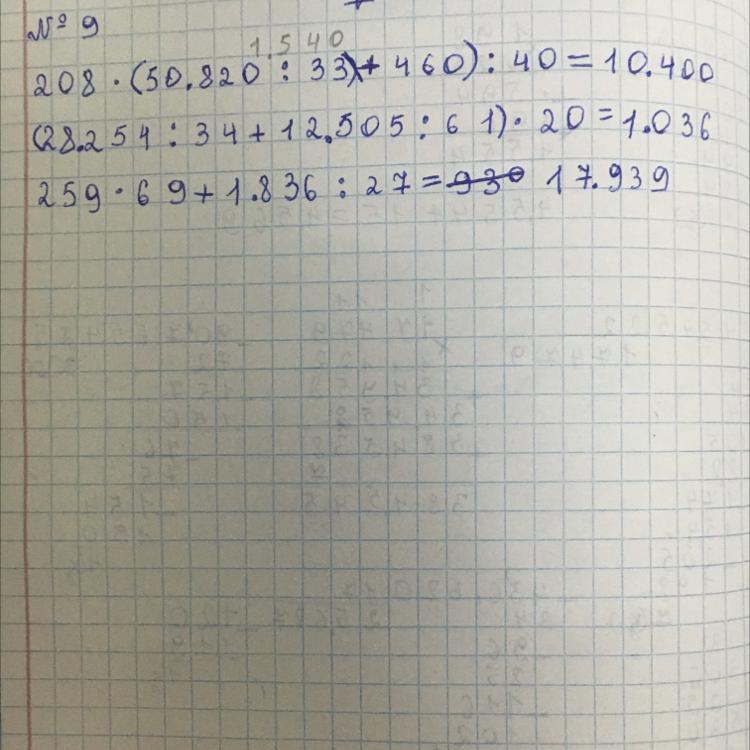 № 9
1.540
208 · (50.820 : 33)+ 460) : 40 = 10.400
(28.254 : 34 + 12.505 : 61) · 20 = 1.036
259 · 69 + 1.836 : 27 = 930 17.939